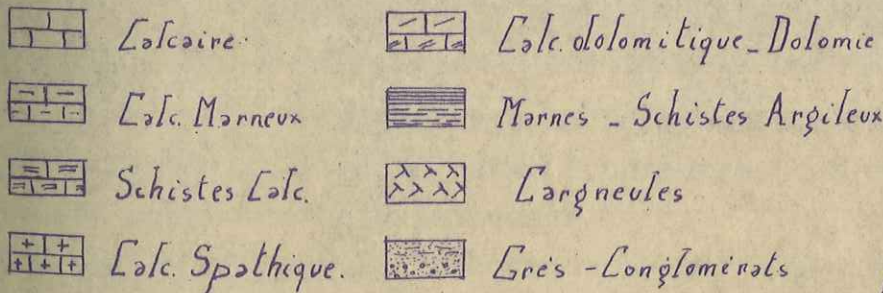 Calcaire.
Calc. Marneux
Schistes Calc.
Calc. Spathique.
Calc. dolomitique - Dolomie
Marnes - Schistes Argileux
Cargneules
Grès - Conglomérats